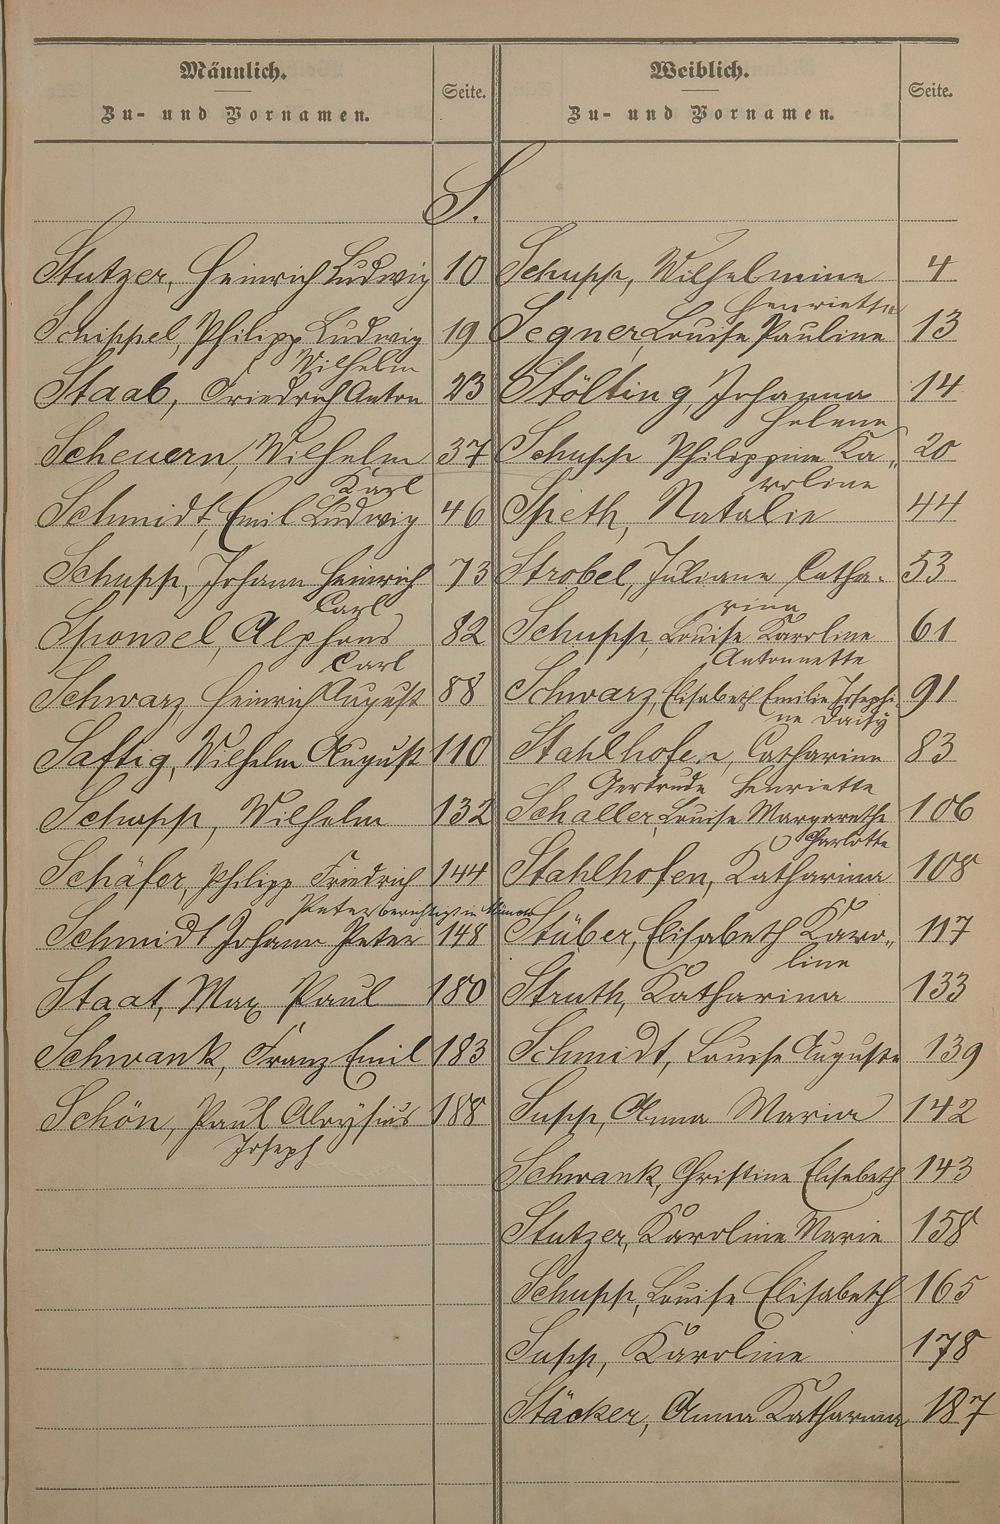 Männlich.
Zu- und Vornamen.
Seite.
Weiblich.
Zu- und Vornamen.
Seite.
S.
Stutzer, Heinrich Ludwig 10
Schippel, Philipp Ludwig 19
Wilhelm
Staab, Friedrich Anton 23
Scheuern, Wilhelm 37
Karl
Schmidt, Emil Ludwig 46
Schupp, Johann Heinrich 73
Carl
Sponsel, Alphons 82
Carl
Schwarz, Heinrich August 88
Saftig, Wilhelm August 110
Schupp, Wilhelm 132
Schäfer, Philipp Friedrich 144
Peter berechtigt in
Schmidt Johann Peter 148
Staat, Max Paul 180
Schwank, Franz Emil 183
Schön, Paul Aloysius 188
Joseph
Schupp, Wilhelmine 4
Henriette
Segner, Louise Pauline 13
Stölting Johanna 14
Helene
Schupp Philippine Ka„ 20
roline
Spieth, Natalie 44
Strobel, Juliane Catha- 53
rina
Schupp, Louise Karoline 61
Antonnette
Schwarz, Elisabeth Emilie Josephi- 91
ne Daisy
Stahlhofen, Catharina 83
Gertrude Henriette
Schaller, Louise Margarethe 106
Charlotte
Stahlhofen, Katharina 108
Stüber, Elisabeth Karo„ 117
line
Struth, Katharina 133
Schmidt, Louise Auguste 139
Supp, Anna Maria 142
Schwank, Christine Elisabeth 143
Stutzer, Karoline Marie 158
Schupp, Louise Elisabeth 165
Supp, Karoline 178
Stäcker, Anna Katharina 187